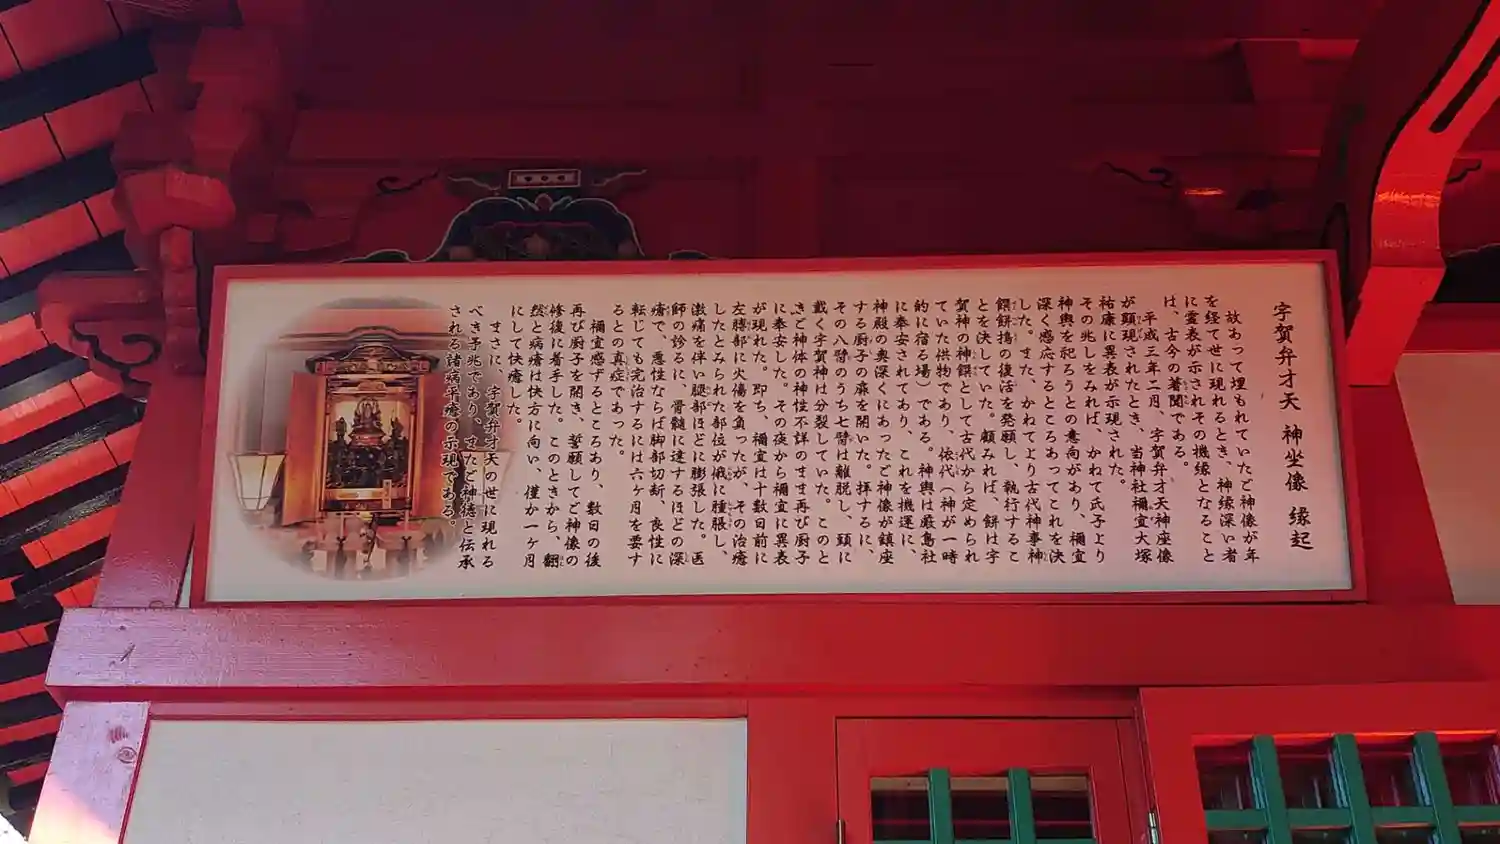 宇賀弁才天 神坐像 縁起
故あって埋もれていたご神像が年
を経て世に現れるとき、神縁深い者
に霊表が示されその機縁となること
は、古今の著聞である。
平成三年二月、宇賀弁才天神座像
が顕現されたとき、当神社禰宜大塚
祐康に異表が示現された。
その兆しをみれば、かねて氏子より
神輿を祀ろうとの意向があり、禰宜
深く感応するところあってこれを決
した。また、かねてより古代神事神
饌餅搗の復活を発願し、執行するこ
とを決していた。顧みれば、餅は宇
賀神の神饌として古代から定められ
ていた供物であり、依代（神が一時
的に宿る場）である。神輿は厳島社
に奉安されてあり、これを機運に、
神殿の奥深くにあったご神像が鎮座
する厨子の扉を開いた。拝するに、
その八臂のうち七臂は離脱し、頭に
戴く宇賀神は分裂していた。このと
きご神体の神性不詳のまま再び厨子
に奉安した。その夜から禰宜に異表
が現れた。即ち、禰宜は十数日前に
左膝部に火傷を負ったが、その治癒
したとみられた部位が俄に腫脹し、
激痛を伴い腿部ほどに膨張した。医
師の診るに、骨髄に達するほどの深
瘡で、悪性ならば脚部切断、良性に
転じても完治するには六ヶ月を要す
るとの真症であった。
禰宜感ずるところあり、数日の後
再び厨子を開き、誓願してご神像の
修復に着手した。このときから、翻
然と病瘡は快方に向い、僅か一ヶ月
にして快癒した。
まさに、宇賀弁才天の世に現れる
べき予兆であり、またご神徳と伝承
される諸病平癒の示現である。